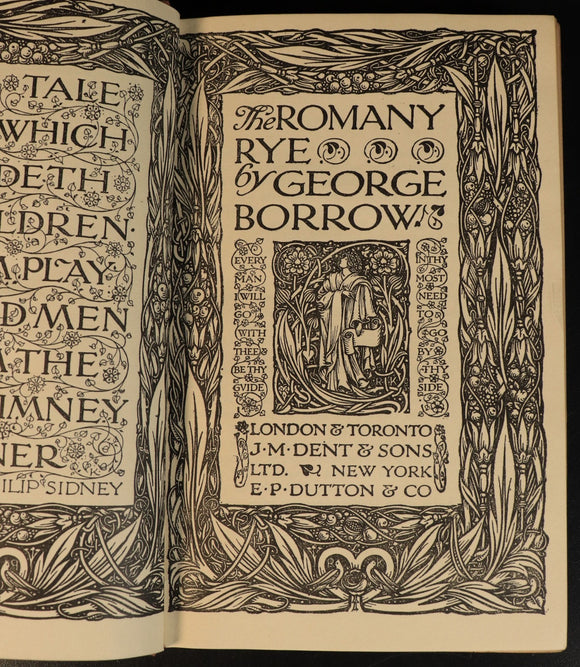 TALE
WHICH
DETH
ILDREN
PLAY
D MEN
THE
IMNEY
NER
ILIP SIDNEY
The ROMANY
RYE
by GEORGE
BORROW
EVERY
MAN, I
WILL
GO
WITH
THEE
BE THY
GUIDE
IN THY
MOST
NEED
TO
GO
BY
THY
SIDE
LONDON & TORONTO
J·M·DENT & SONS
LTD. NEW YORK
E·P·DUTTON & CO